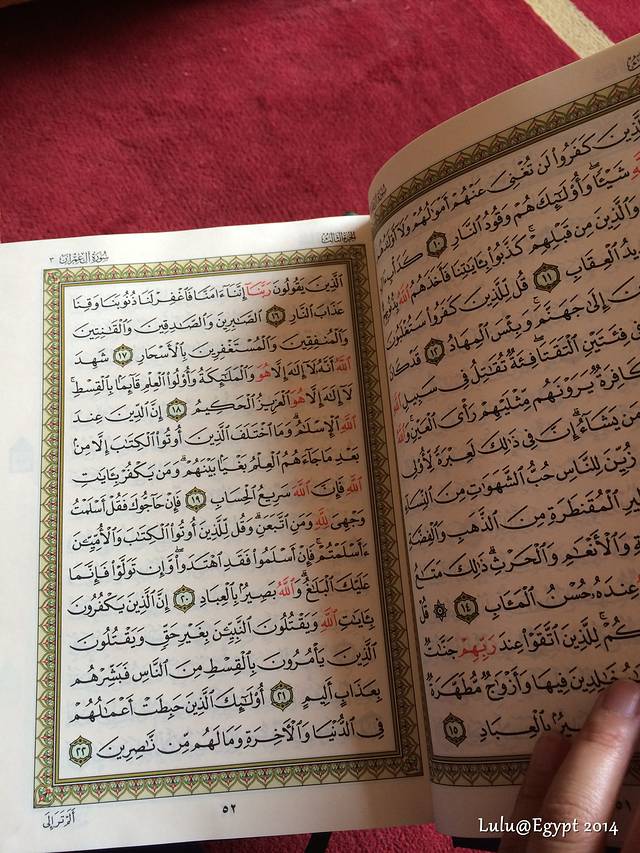 الَّذِينَ كَفَرُوا۟ لَن تُغْنِىَ عَنْهُمْ أَمْوَٰلُهُمْ وَلَآ
شَيْـًٔا ۖ وَأُو۟لَٰٓئِكَ هُمْ وَقُودُ ٱلنَّارِ ١٠ كَدَأْبِ
وَٱلَّذِينَ مِن قَبْلِهِمْ ۚ كَذَّبُوا۟ بِـَٔايَٰتِنَا فَأَخَذَهُمُ ٱللَّهُ
ٱلْعِقَابِ ١١ قُل لِّلَّذِينَ كَفَرُوا۟ سَتُغْلَبُونَ
إِلَىٰ جَهَنَّمَ ۚ وَبِئْسَ ٱلْمِهَادُ ١٢ قَدْ كَانَ
فِى فِئَتَيْنِ ٱلْتَقَتَا ۖ فِئَةٌ تُقَٰتِلُ فِى سَبِيلِ ٱللَّهِ
كَافِرَةٌ يَرَوْنَهُم مِّثْلَيْهِمْ رَأْىَ ٱلْعَيْنِ ۚ وَٱللَّهُ
مَن يَشَآءُ ۗ إِنَّ فِى ذَٰلِكَ لَعِبْرَةً لِّأُو۟لِى
زُيِّنَ لِلنَّاسِ حُبُّ ٱلشَّهَوَٰتِ مِنَ ٱلنِّسَآءِ
ٱلْمُقَنطَرَةِ مِنَ ٱلذَّهَبِ وَٱلْفِضَّةِ
وَٱلْأَنْعَٰمِ وَٱلْحَرْثِ ۗ ذَٰلِكَ مَتَٰعُ
عِندَهُۥ حُسْنُ ٱلْمَـَٔابِ ١٤ ۞ قُلْ
لِلَّذِينَ ٱتَّقَوْا۟ عِندَ رَبِّهِمْ جَنَّٰتٌ
خَٰلِدِينَ فِيهَا وَأَزْوَٰجٌ مُّطَهَّرَةٌ
بِٱلْعِبَادِ ١٥
٥١
الجزء الثالث
سورة آل عمران ٣
ٱلَّذِينَ يَقُولُونَ رَبَّنَآ إِنَّنَآ ءَامَنَّا فَٱغْفِرْ لَنَا ذُنُوبَنَا وَقِنَا
عَذَابَ ٱلنَّارِ ١٦ ٱلصَّٰبِرِينَ وَٱلصَّٰدِقِينَ وَٱلْقَٰنِتِينَ
وَٱلْمُنفِقِينَ وَٱلْمُسْتَغْفِرِينَ بِٱلْأَسْحَارِ ١٧ شَهِدَ
ٱللَّهُ أَنَّهُۥ لَآ إِلَٰهَ إِلَّا هُوَ وَٱلْمَلَٰٓئِكَةُ وَأُو۟لُوا۟ ٱلْعِلْمِ قَآئِمًۢا بِٱلْقِسْطِ ۚ
لَآ إِلَٰهَ إِلَّا هُوَ ٱلْعَزِيزُ ٱلْحَكِيمُ ١٨ إِنَّ ٱلدِّينَ عِندَ
ٱللَّهِ ٱلْإِسْلَٰمُ ۗ وَمَا ٱخْتَلَفَ ٱلَّذِينَ أُوتُوا۟ ٱلْكِتَٰبَ إِلَّا مِنۢ
بَعْدِ مَا جَآءَهُمُ ٱلْعِلْمُ بَغْيًۢا بَيْنَهُمْ ۗ وَمَن يَكْفُرْ بِـَٔايَٰتِ
ٱللَّهِ فَإِنَّ ٱللَّهَ سَرِيعُ ٱلْحِسَابِ ١٩ فَإِنْ حَآجُّوكَ فَقُلْ أَسْلَمْتُ
وَجْهِىَ لِلَّهِ وَمَنِ ٱتَّبَعَنِ ۗ وَقُل لِّلَّذِينَ أُوتُوا۟ ٱلْكِتَٰبَ وَٱلْأُمِّيِّـۧنَ
ءَأَسْلَمْتُمْ ۚ فَإِنْ أَسْلَمُوا۟ فَقَدِ ٱهْتَدَوا۟ ۖ وَّإِن تَوَلَّوْا۟ فَإِنَّمَا
عَلَيْكَ ٱلْبَلَٰغُ ۗ وَٱللَّهُ بَصِيرٌۢ بِٱلْعِبَادِ ٢٠ إِنَّ ٱلَّذِينَ يَكْفُرُونَ
بِـَٔايَٰتِ ٱللَّهِ وَيَقْتُلُونَ ٱلنَّبِيِّـۧنَ بِغَيْرِ حَقٍّ وَيَقْتُلُونَ
ٱلَّذِينَ يَأْمُرُونَ بِٱلْقِسْطِ مِنَ ٱلنَّاسِ فَبَشِّرْهُم
بِعَذَابٍ أَلِيمٍ ٢١ أُو۟لَٰٓئِكَ ٱلَّذِينَ حَبِطَتْ أَعْمَٰلُهُمْ
فِى ٱلدُّنْيَا وَٱلْأَخِرَةِ وَمَا لَهُم مِّن نَّٰصِرِينَ ٢٢
٥٢
ألم تر إلى
Lulu@Egypt 2014